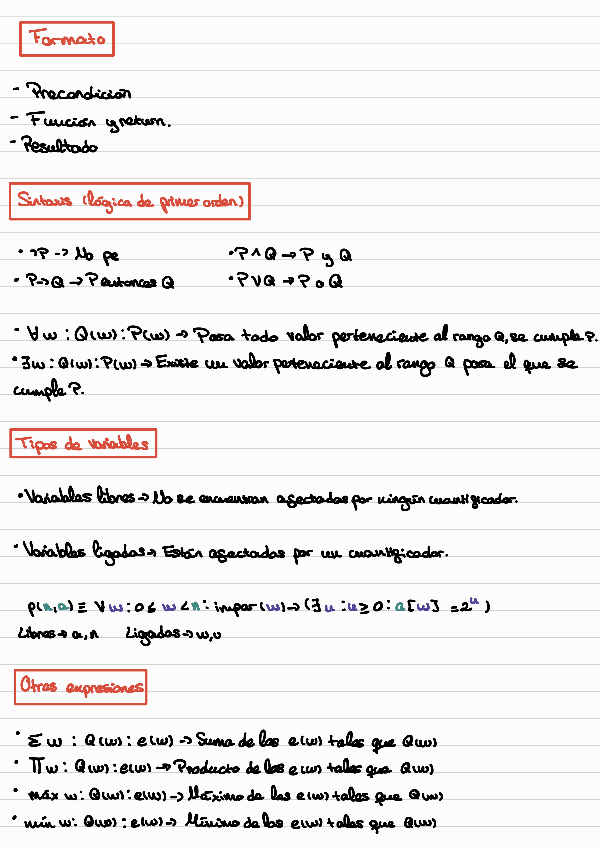 Formato
- Precondición
- Función y return.
- Resultado
Sintaxis (lógica de primer orden)
• ¬P -> No pe
• P∧Q → P y Q
• P->Q → P entonces Q
• P∨Q → P o Q
• ∀w : Q(w) : P(w) → Para todo valor perteneciente al rango Q, se cumple P.
• ∃w : Q(w) : P(w) → Existe un valor perteneciente al rango Q para el que se
cumple P.
Tipos de variables
• Variables libres → No se encuentran afectadas por ningún cuantificador.
• Variables ligadas → Están afectadas por un cuantificador.
p(n,a) ≡ ∀w : 0 ≤ w < n : impar(w) → (∃u : u ≥ 0 : a[w] = 2^u)
Libres → a, n Ligadas → w, u
Otras expresiones
• Σ w : Q(w) : e(w) → Suma de las e(w) tales que Q(w)
• Π w : Q(w) : e(w) → Producto de las e(w) tales que Q(w)
• máx w : Q(w) : e(w) → Máximo de las e(w) tales que Q(w)
• mín w : Q(w) : e(w) → Mínimo de las e(w) tales que Q(w)